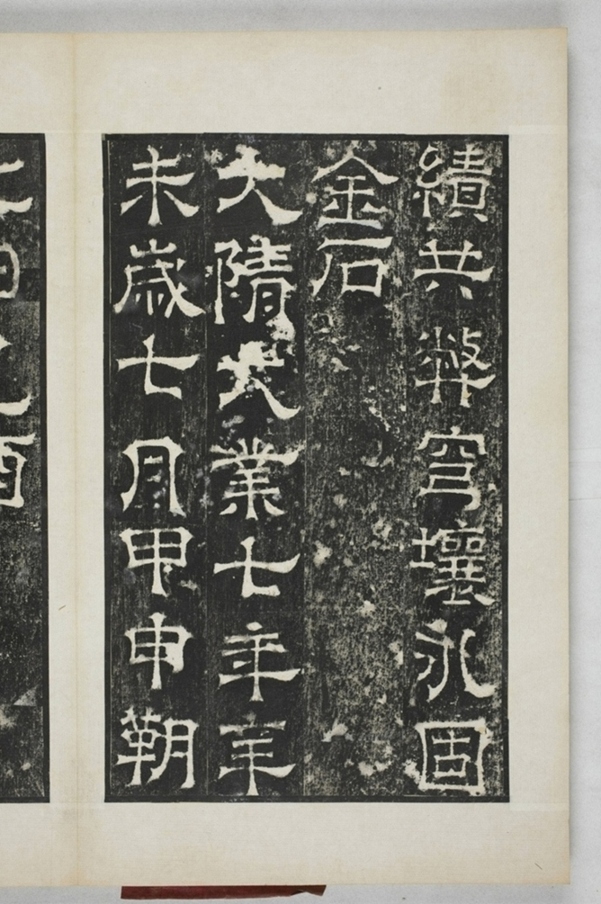 績共弊穹壤永固
金石
大隋大業七年辛
未歲七月甲申朔